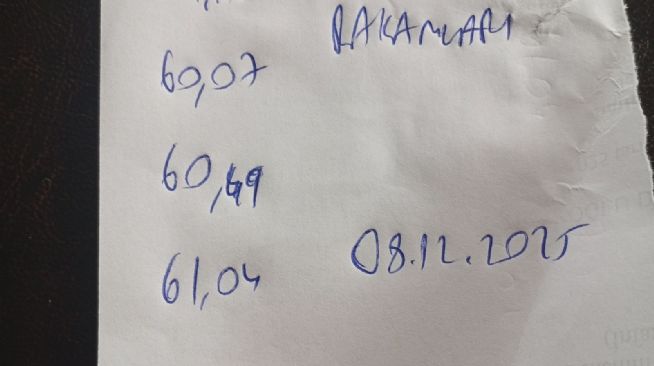 RAKAMLARI
60,07
60,49
61,04 08.12.2025